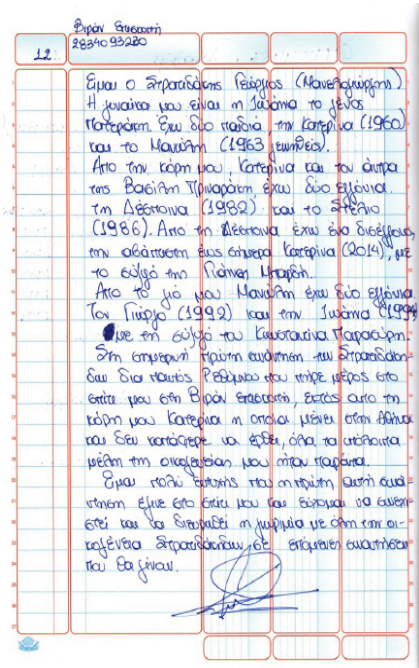 Βιράν Επισκοπή
12 2834093230
Είμαι ο Στρατιδάκης Γεώργιος (Μανελογιώργης)
Η γυναίκα μου είναι η Ιωάννα το γένος
Πατεράκη. Έχω δύο παιδιά, την Κατερίνα (1960)
και το Μανώλη (1963 γεννηθείς).
Απο την κόρη μου, Κατερίνα και τον άντρα
της Βασίλη Πριναράκη έχω δύο εγγόνια.
τη Δέσποινα (1982) και το Στέλιο
(1986). Απο τη Δέσποινα έχω ένα δισέγγονο,
την αβάπτιστη έως σήμερα Κατερίνα (2014), με
το σύζυγό της Γιάννη Μπαρδή.
Απο το γιό μου Μανώλη έχω δύο εγγόνια
Τον Γιώργο (1992) και την Ιωάννα (1994)
με τη σύζυγό του Κωνσταντίνα Παρασύρη.
Στη σημερινή πρώτη συνάντηση των Στρατιδάκη-
δων δια παντός Ρεθύμνου που πήρε μέρος στο
σπίτι μου στη Βιράν επισκοπή, εκτός απο τη
κόρη μου Κατερίνα η οποία μένει στην Αθήνα
και δεν κατάφερε να έρθει, όλα τα υπόλοιπα
μέλη της οικογένειας μου ήταν παρόντα.
Είμαι πολύ ευτυχής που η πρώτη αυτή συνά-
ντηση έγινε στο σπίτι μου και εύχομαι να συνεχι-
στεί και να διευρυνθεί η γνωριμία με όλη την οι-
κογένεια Στρατιδάκηδων σε επόμενες συναντήσεις
που θα γίνουν.